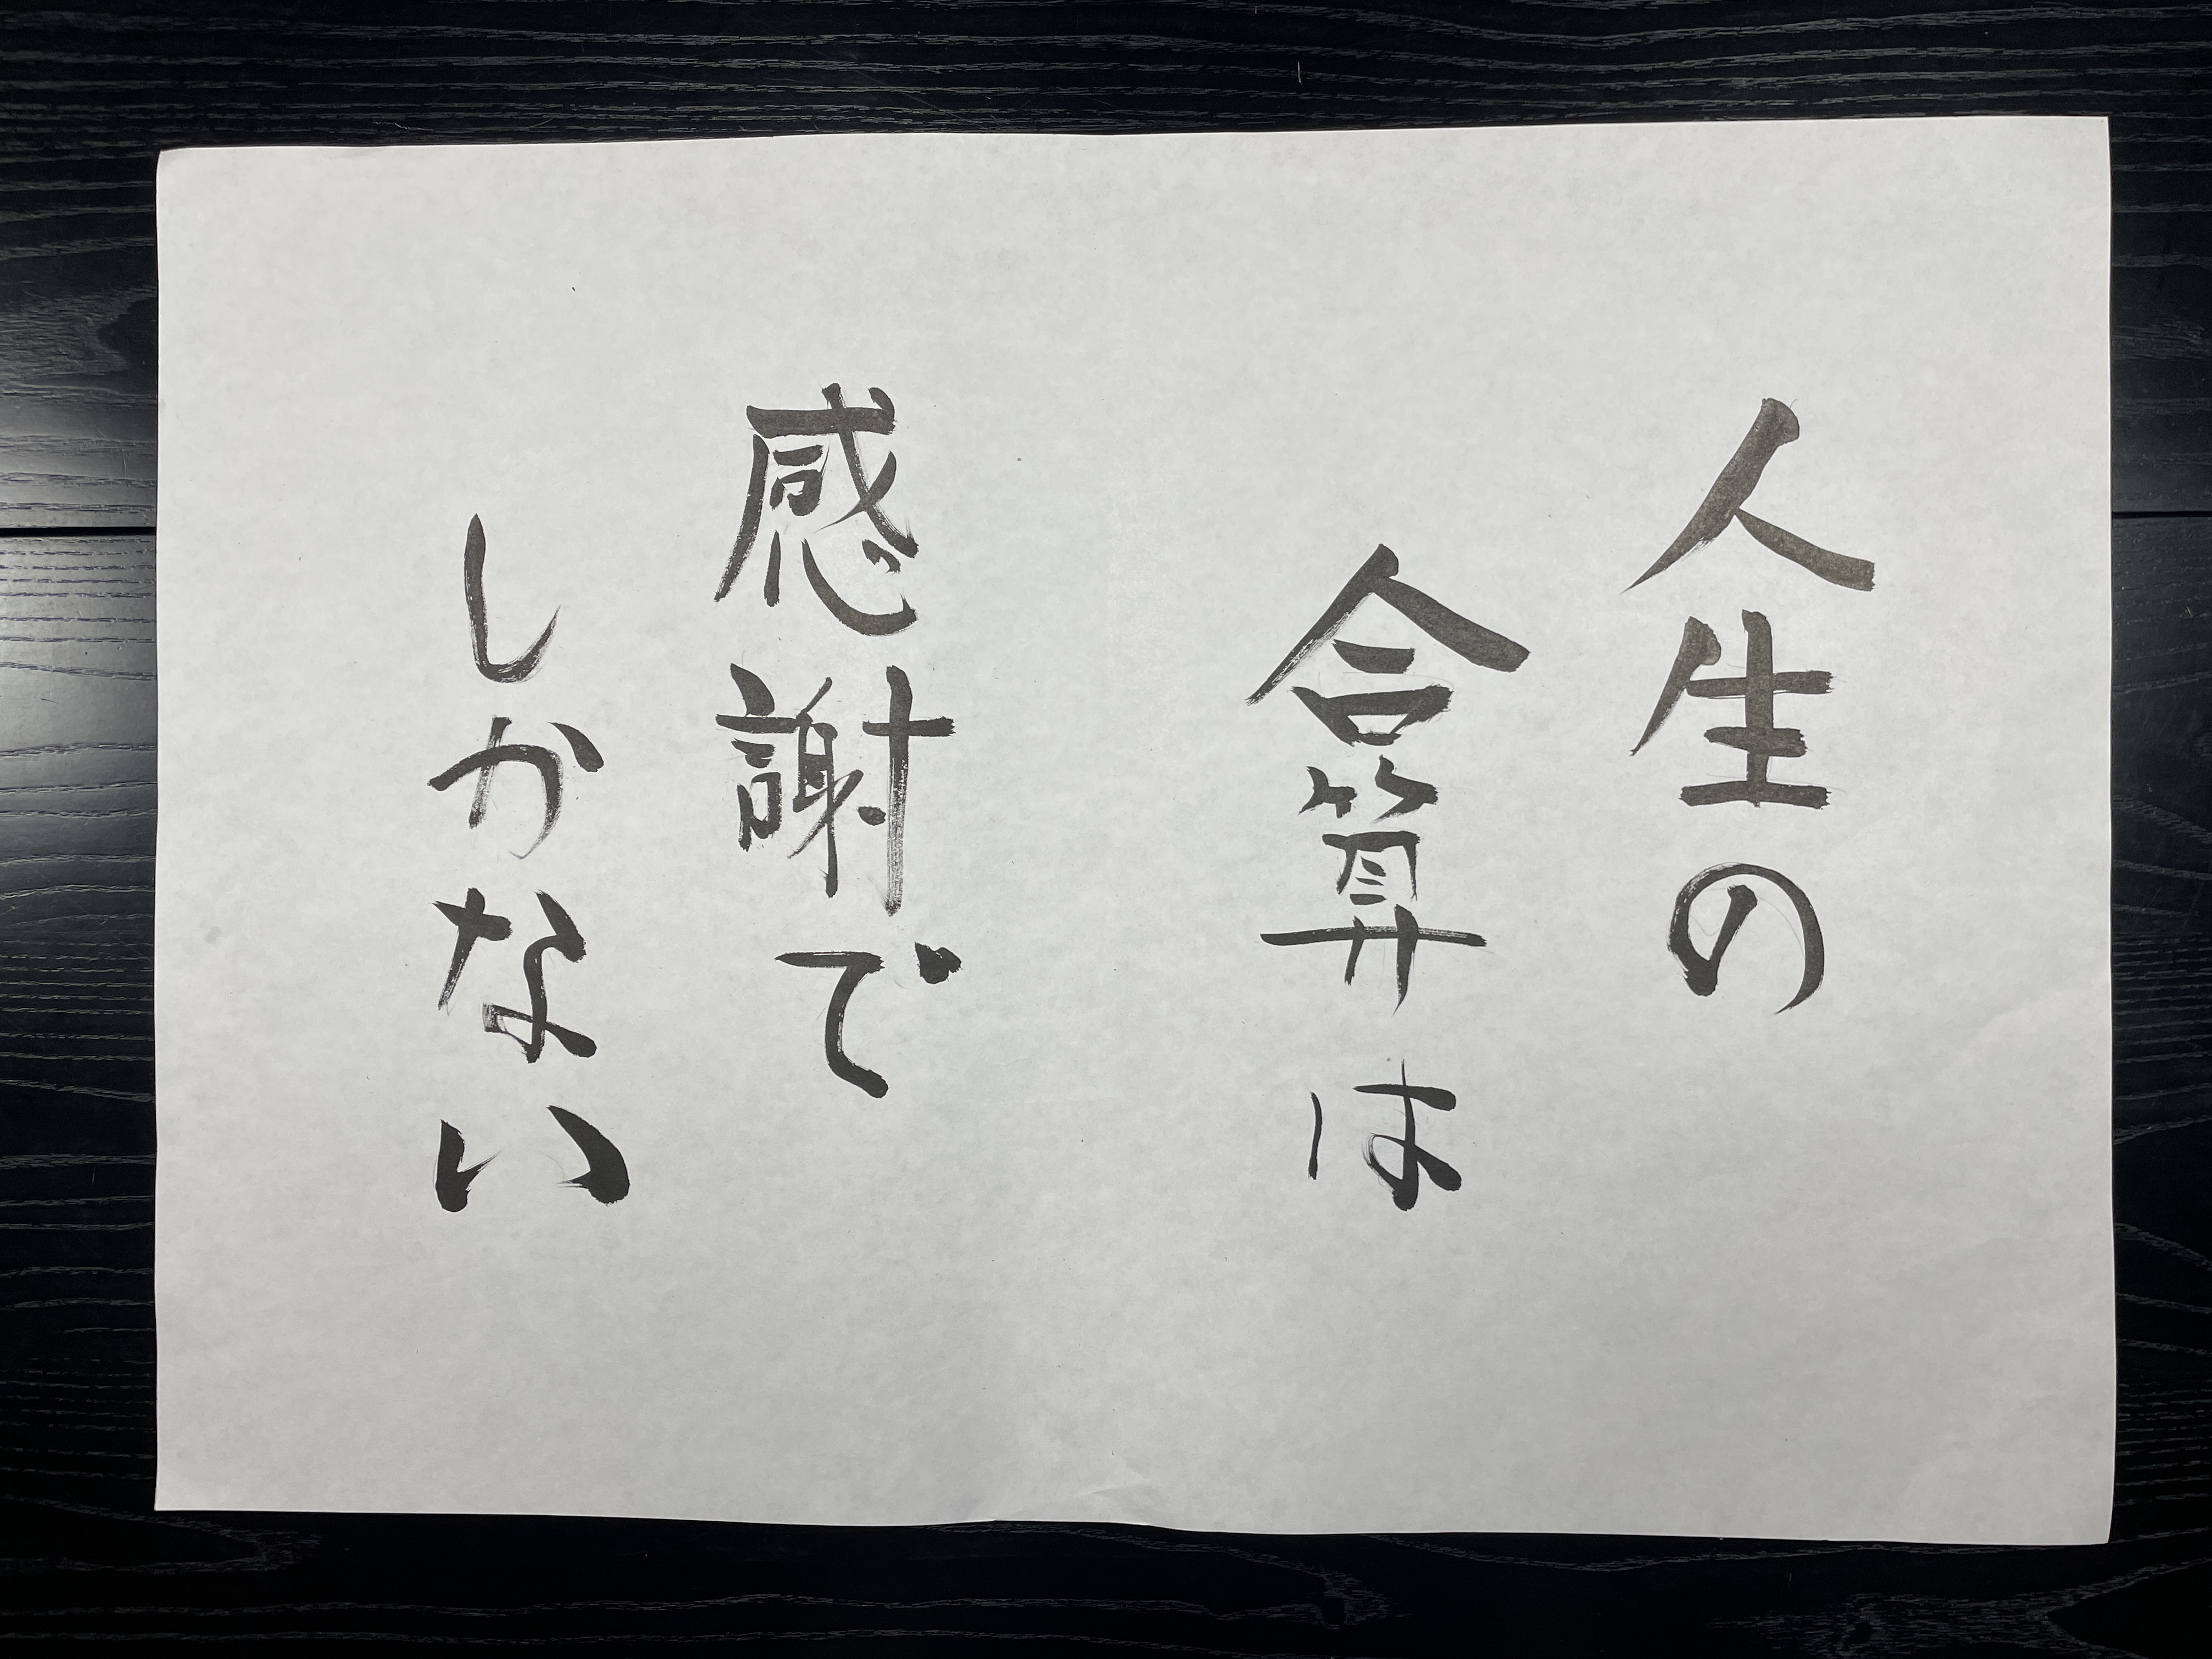 人生の
合算は
感謝で
しかない